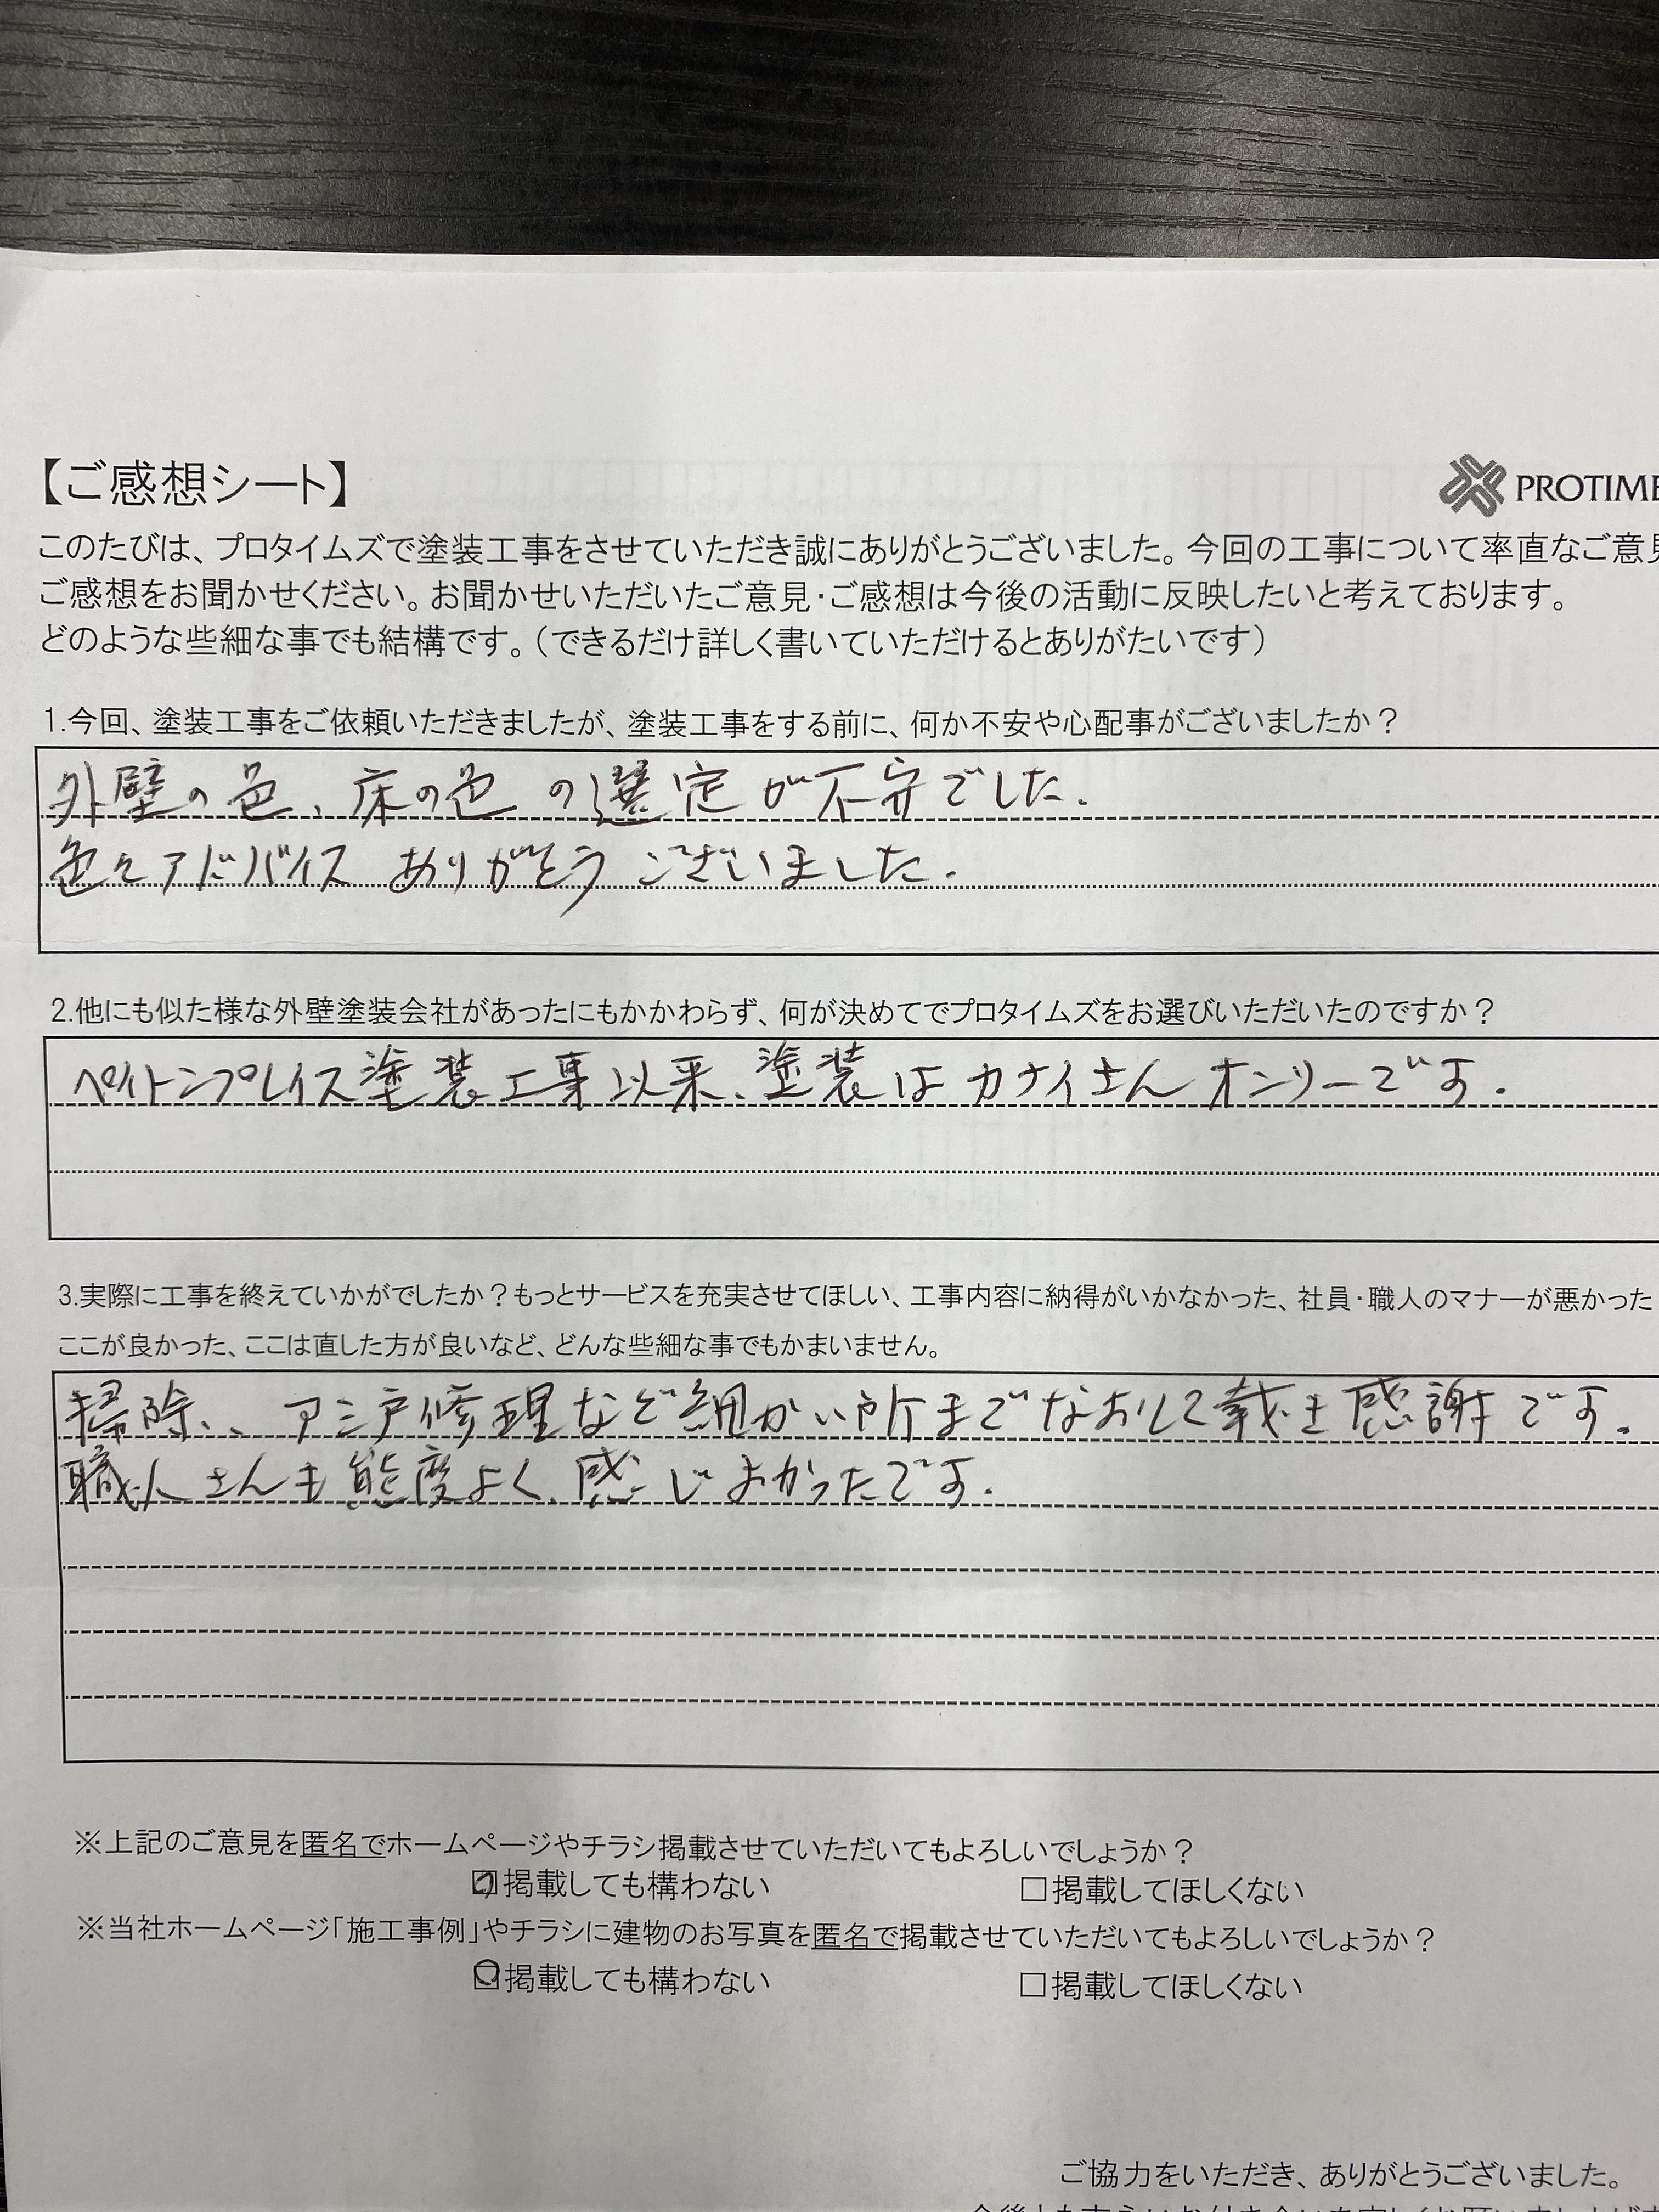 【ご感想シート】
PROTIME
このたびは、プロタイムズで塗装工事をさせていただき誠にありがとうございました。今回の工事について率直なご意見
ご感想をお聞かせください。お聞かせいただいたご意見・ご感想は今後の活動に反映したいと考えております。
どのような些細な事でも結構です。（できるだけ詳しく書いていただけるとありがたいです）
1.今回、塗装工事をご依頼いただきましたが、塗装工事をする前に、何か不安や心配事がございましたか？
外壁の色、床の色の選定が不安でした.
色々アドバイスありがとうございました.
2.他にも似た様な外壁塗装会社があったにもかかわらず、何が決めてでプロタイムズをお選びいただいたのですか？
ペイトンプレイス塗装工事以来、塗装はカナイさんオンリーです.
3.実際に工事を終えていかがでしたか？もっとサービスを充実させてほしい、工事内容に納得がいかなかった、社員・職人のマナーが悪かった
ここが良かった、ここは直した方が良いなど、どんな些細な事でもかまいません。
掃除、、アミ戸修理など細かい所までなおして載き感謝です.
職人さんも態度よく、感じよかったです.
※上記のご意見を匿名でホームページやチラシ掲載させていただいてもよろしいでしょうか？
☑掲載しても構わない □掲載してほしくない
※当社ホームページ「施工事例」やチラシに建物のお写真を匿名で掲載させていただいてもよろしいでしょうか？
☑掲載しても構わない □掲載してほしくない
ご協力をいただき、ありがとうございました。